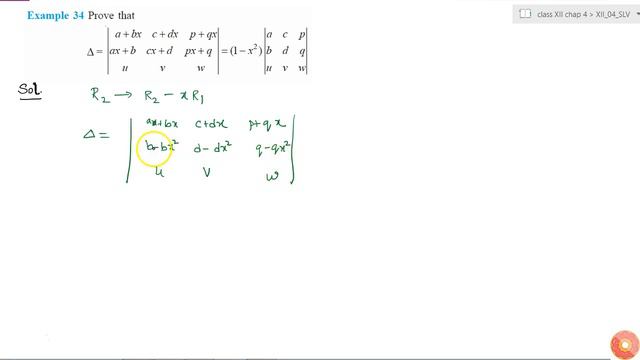 Example 34 Prove that
Δ = | a + bx c + dx p + qx |
| ax + b cx + d px + q |
| u v w |
= (1 − x²)
| a c p |
| b d q |
| u v w |
class XII chap 4 > XII_04_SLV
Sol.
R₂ → R₂ − x R₁
Δ =
| a+bx c+dx p+qx |
| b−bx² d−dx² q−qx² |
| u v w |
doubtnut